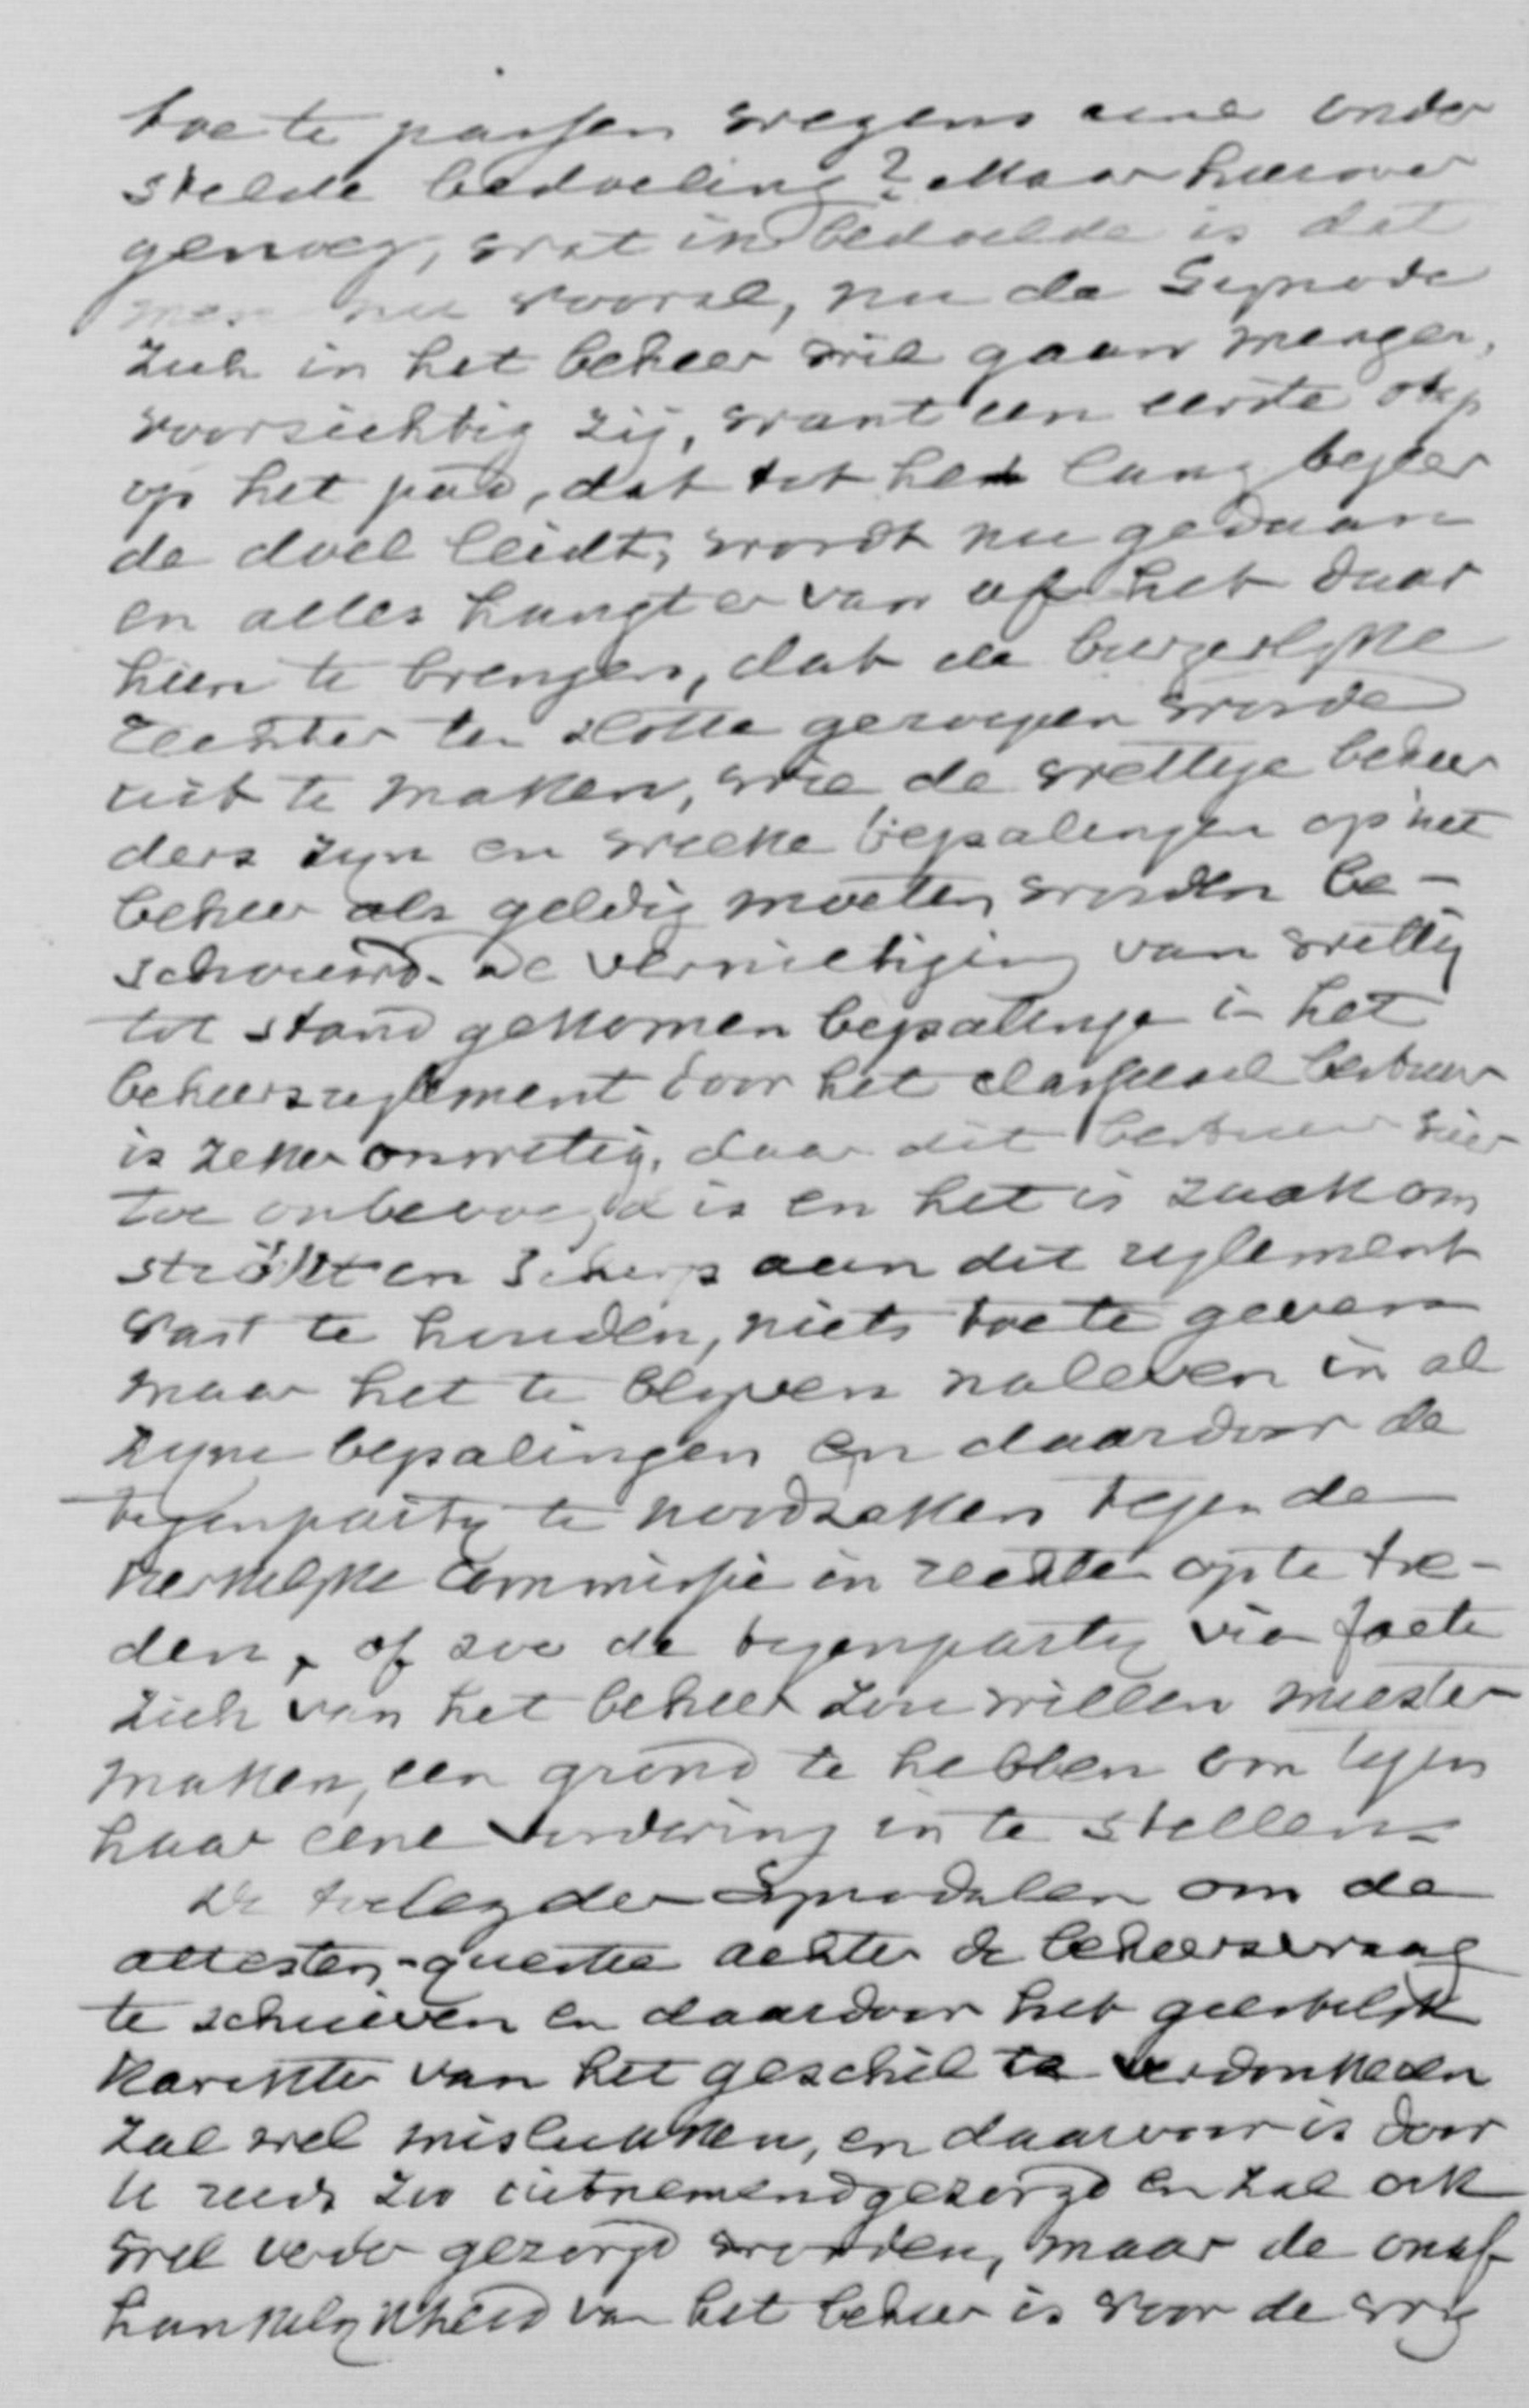 toe te passen wegens eene onder
stelde bedoeling? Maar hierover
genoeg, wat ik bedoelde is dat
men nu vooral, nu de Synode
zich in het beheer wil gaan mengen,
voorzichtig zij, want een eerste stap
op het pad, dat tot het lang begeer
de doel leidt, wordt nu gedaan
en alles hangt er van af het daar
heen te brengen, dat de burgerlyke
rechter ten slotte geroepen worde
uit te maken, wie de wettige beheer
ders zyn en welke bepalingen op het
beheer als geldig moeten worden be-
schouwd. De vernietiging van wettig
tot stand gekomen bepalinge in het
beheersreglement door het classicaal bestuur
is zeker onwettig, daar dit bestuur hier
toe onbevoegd is en het is zaak om
strikt en scherp aan dit reglement
vast te houden, niets toe te geven
maar het te blyven naleven in al
zyne bepalingen en daardoor de
tegenparty te noodzaken tegen de
kerkelyke Commissie in rechten op te tre-
den, of zoo de tegenparty via facti
zich van het beheer zou willen meester
maken, een grond te hebben om tegen
haar eene vordering in te stellen.
De toeleg der Synodalen om de
attesten-questie achter de beheersvraag
te schuiven en daardoor het geestelyk
karakter van het geschil te verdonkeren
zal wel mislukken, en daarvoor is door
U reeds zoo uitnemend gezorgd en zal ook
wel verder gezorgd worden, maar de onaf
hankelykheid van het beheer is voor de vry